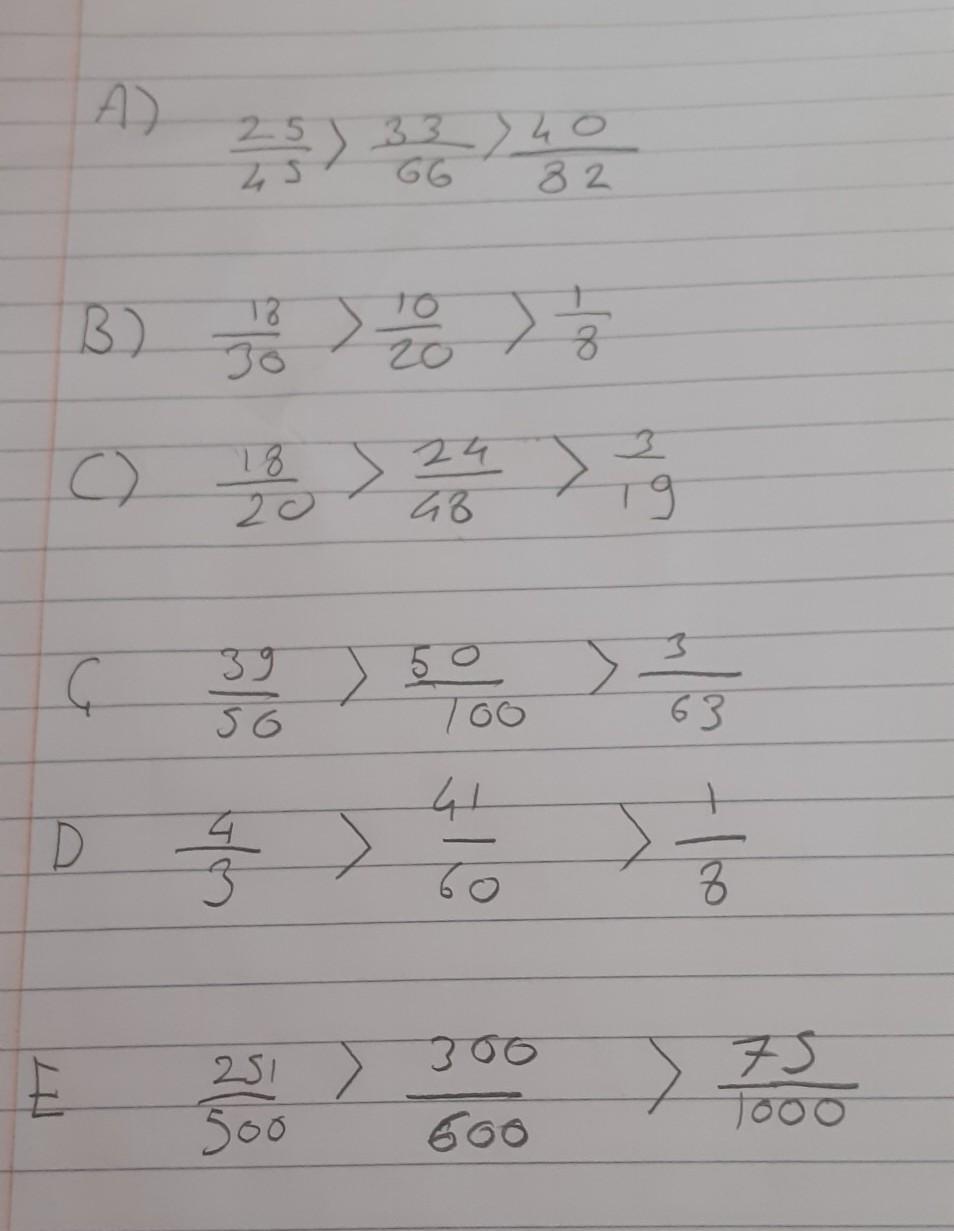 A) 25/45 > 33/66 > 40/82
B) 18/30 > 10/20 > 1/8
C) 18/20 > 24/48 > 3/19
Ç 39/56 > 50/100 > 3/63
D 4/3 > 41/60 > 1/8
E 251/500 > 300/600 > 75/1000